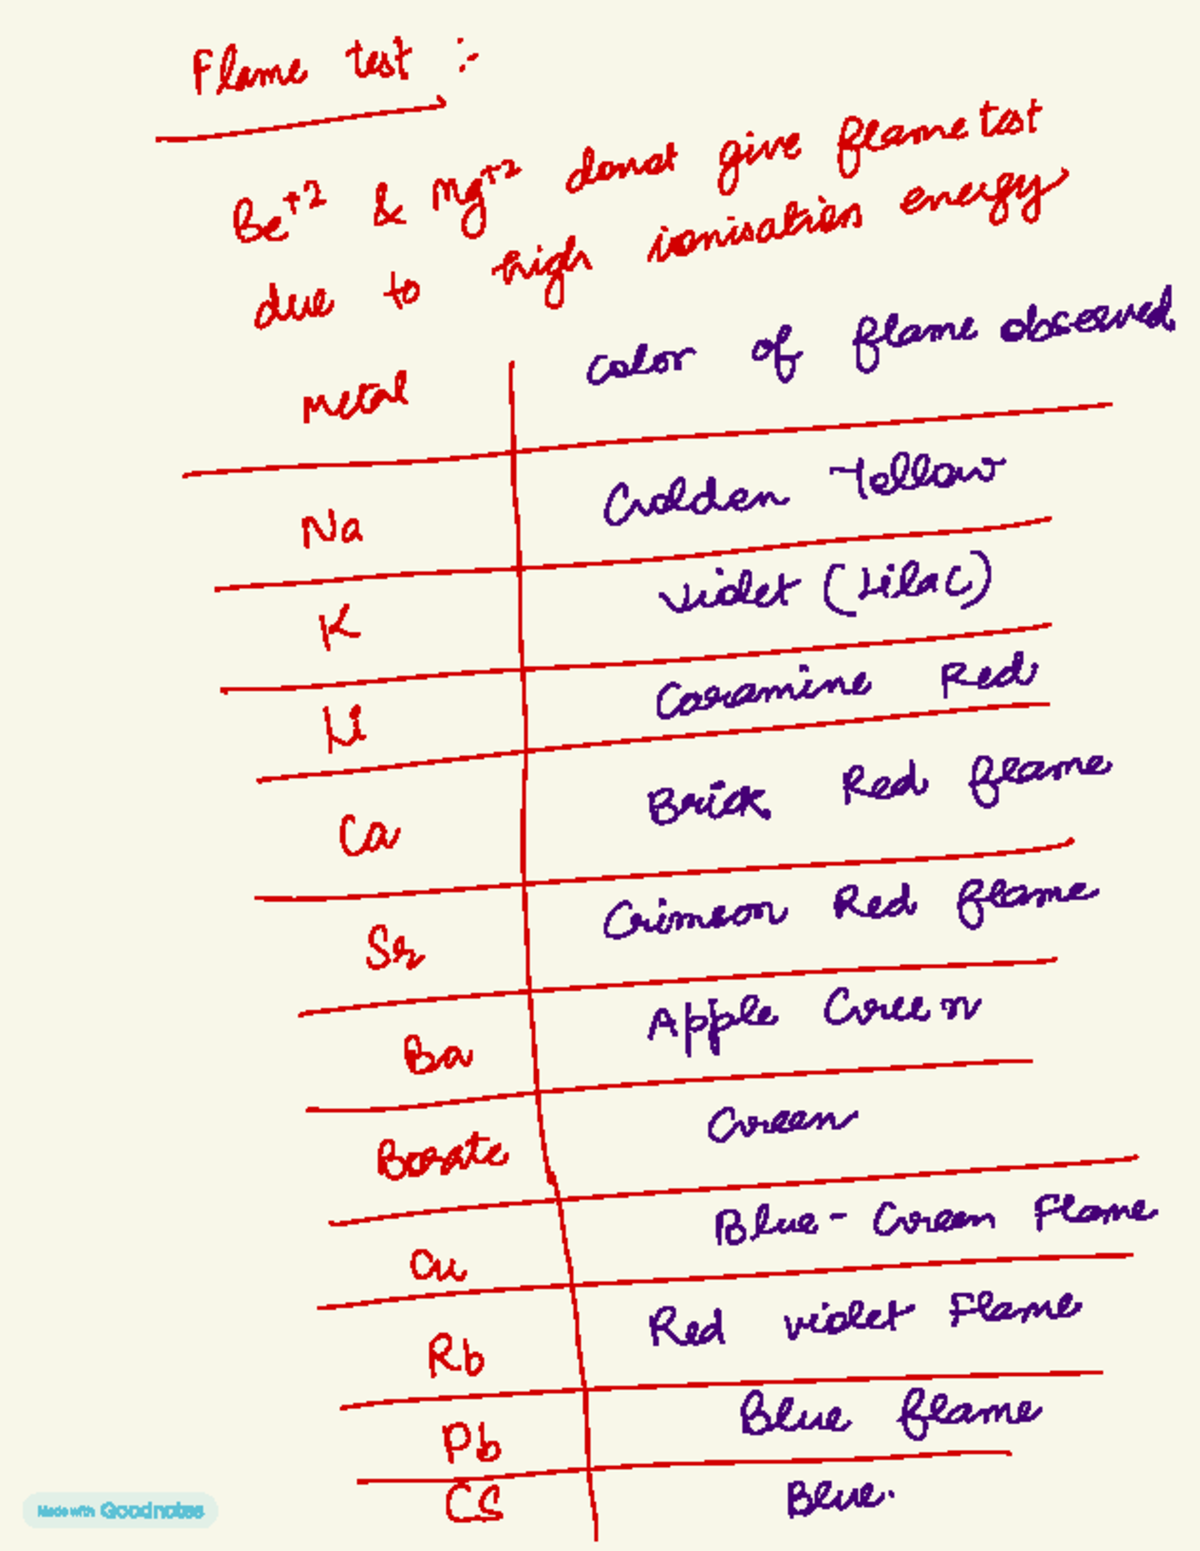 Flame test :-
Be+2 & Mg+2 donot give flame test
due to high ionisation energy
Metal color of flame observed.
Na Golden Yellow
K Violet (Lilac)
Li Caramine Red
Ca Brick Red flame
Sr Crimson Red flame
Ba Apple Green
Borate Green
Cu Blue-Green Flame
Rb Red violet Flame
Pb Blue flame
CS Blue.
Made with Goodnotes